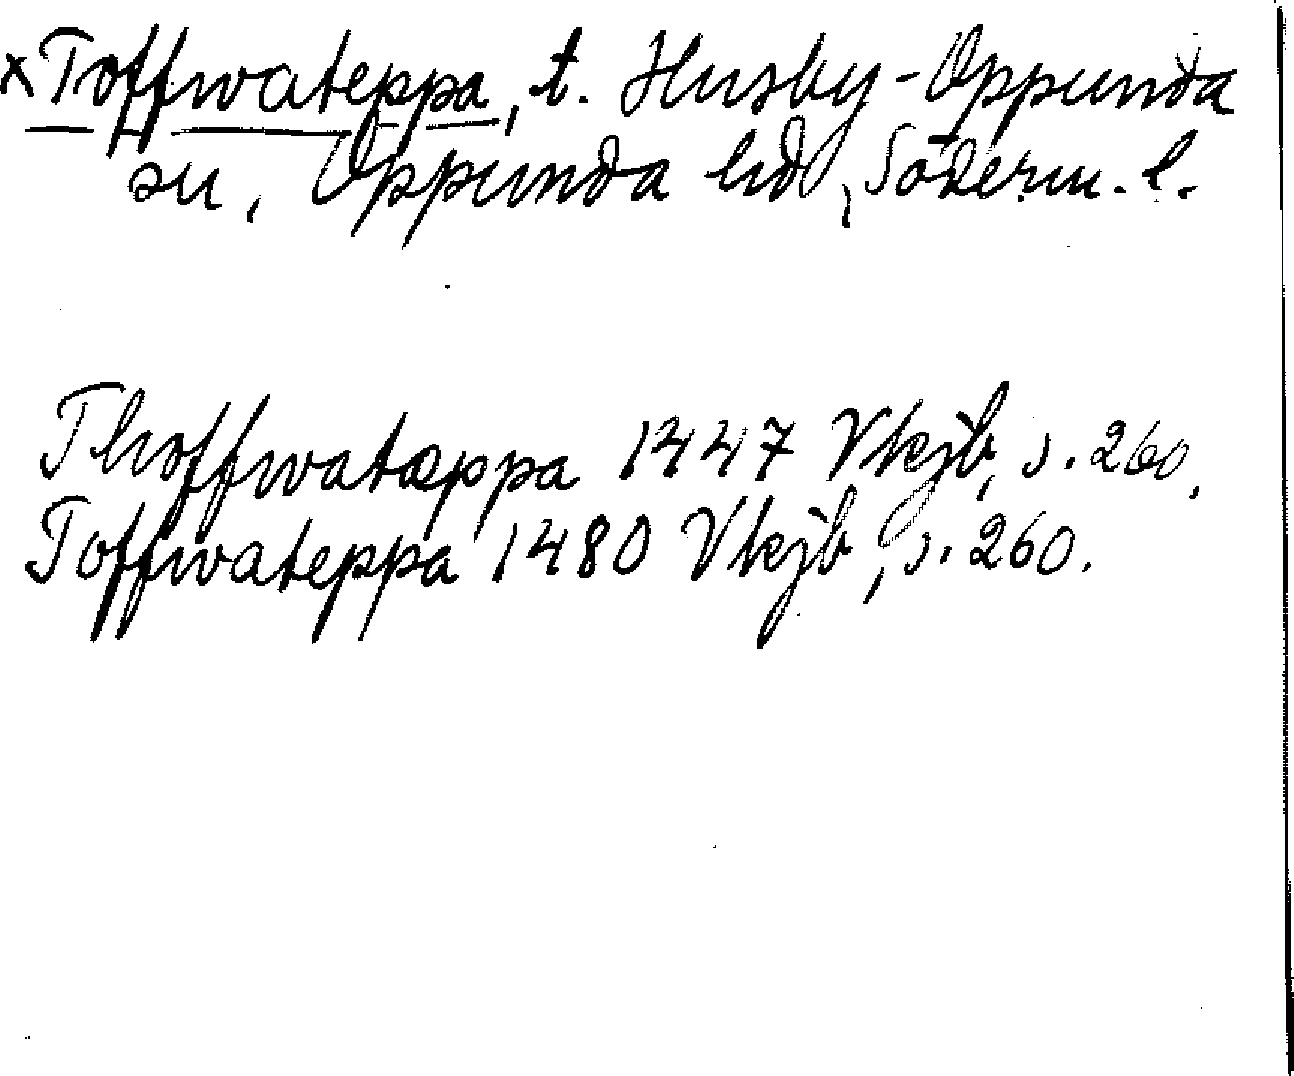 xToffwateppa, t. Husby-Oppunda
sn, Oppunda hd, Söderm. l.
Thoffwatæppa 1447 Vkjb, s. 260,
Toffwateppa 1480 Vkjb, s. 260.